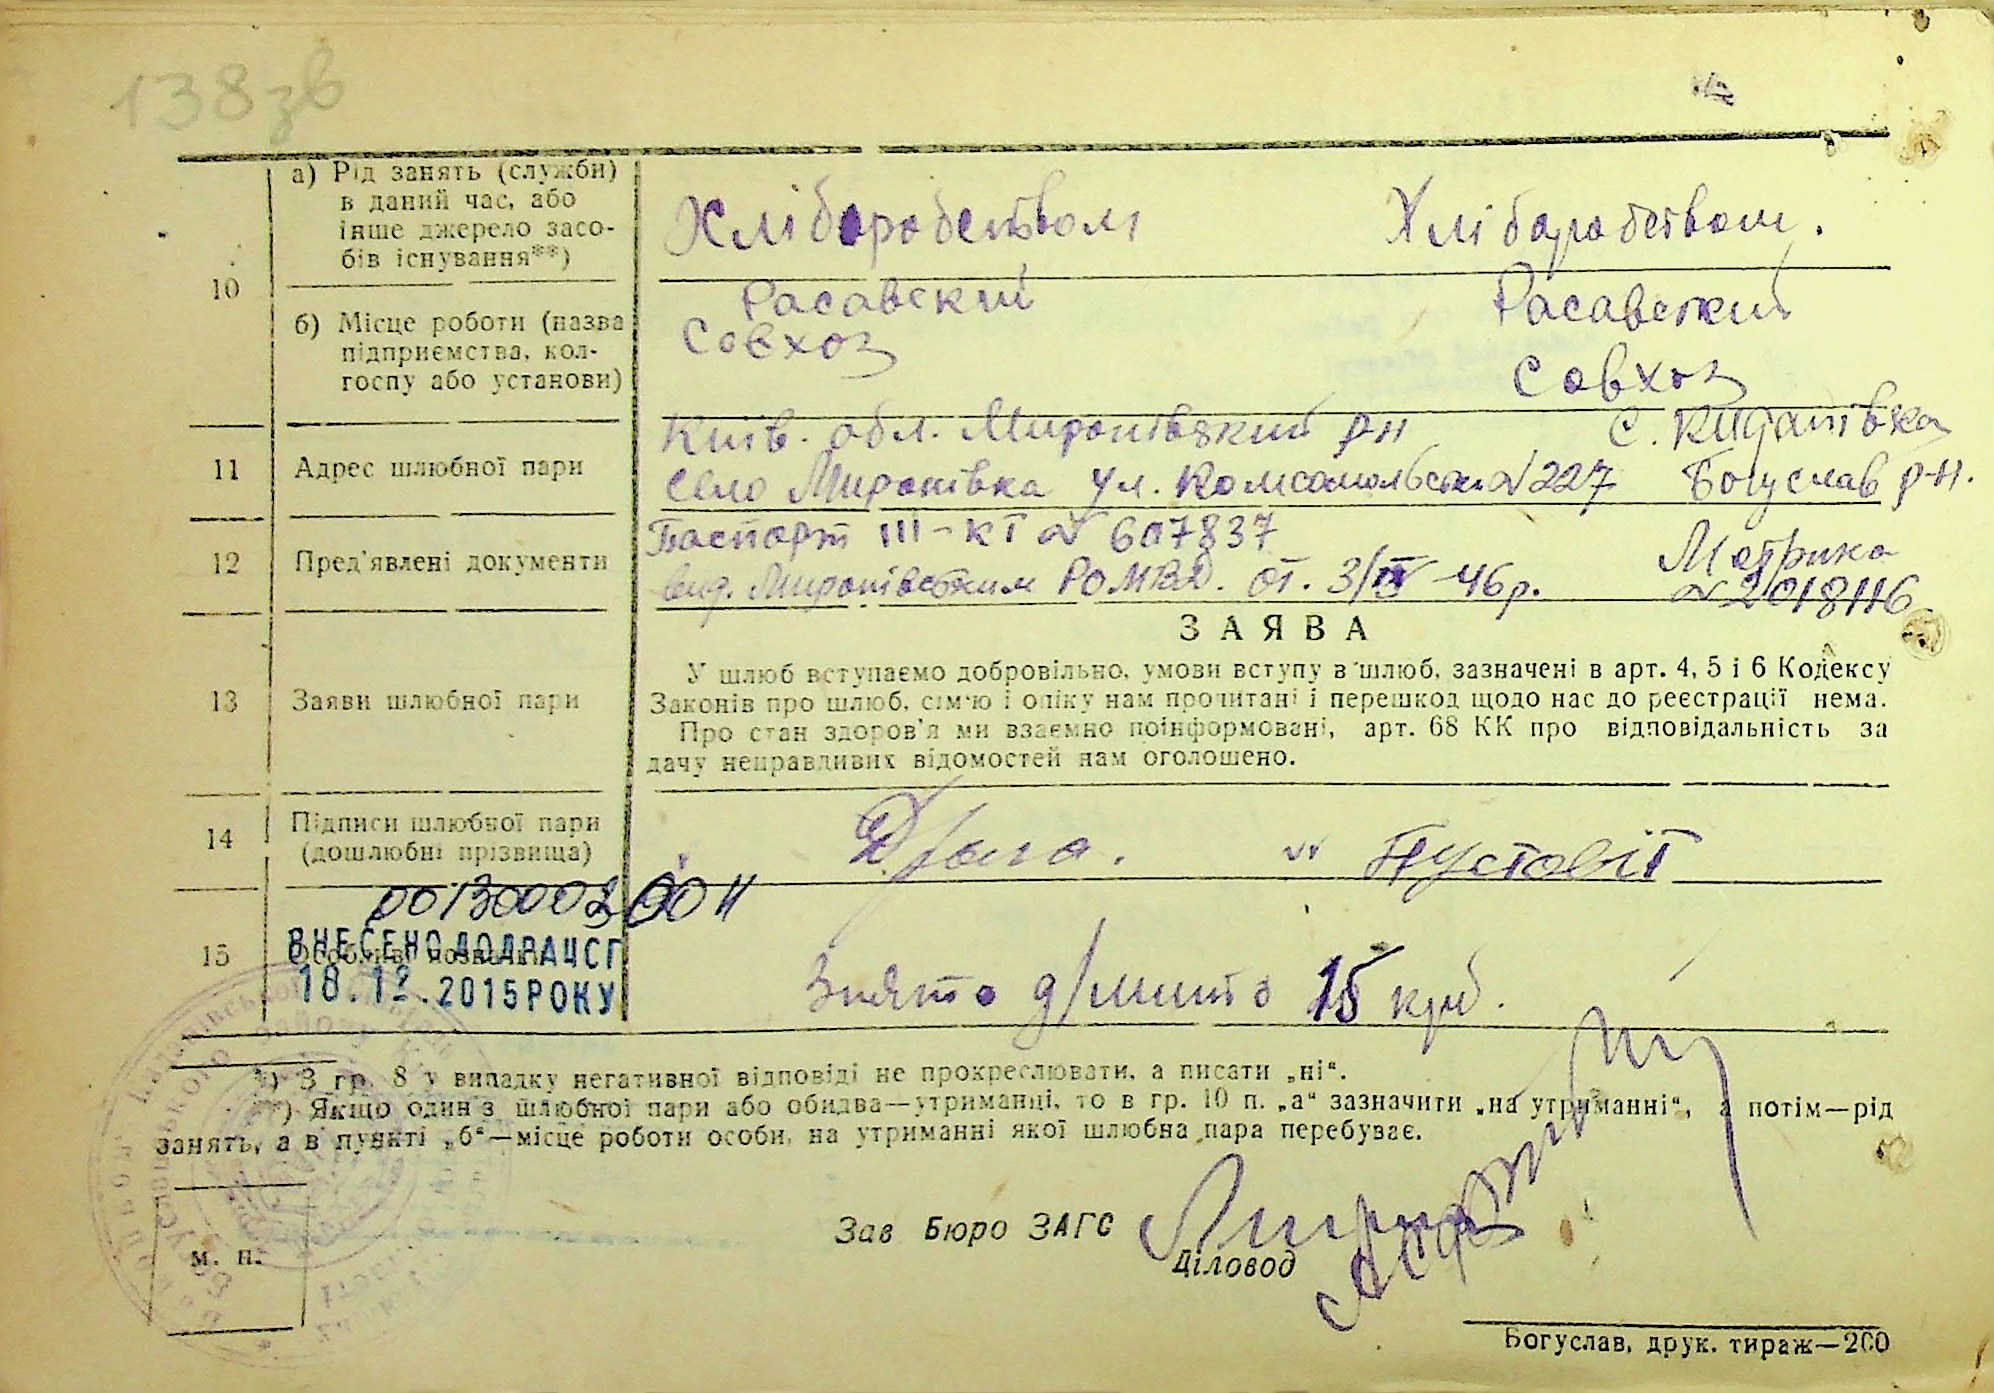 138зв
а) Рід занять (служби)
в даний час, або
інше джерело засо-
бів існування**)
Хліборобством Хліборобством.
10
б) Місце роботи (назва
підприємства, кол-
госпу або установи)
Расавский Расавский
Совхоз Совхоз
11
Адрес шлюбної пари
Київ. обл. Миронівский р-н с.
село Миронівка ул. Комсомольская №227 Богуслав р-н.
12
Пред'явлені документи
Паспорт III-КГ № 607837 Метрика
вид. Миронівским РОМВД. от. 3/ -46р. № 2018116
13
Заяви шлюбної пари
ЗАЯВА
У шлюб вступаємо добровільно, умови вступу в шлюб, зазначені в арт. 4, 5 і 6 Кодексу
Законів про шлюб, сім'ю і опіку нам прочитані і перешкод щодо нас до реєстрації нема.
Про стан здоров'я ми взаємно поінформовані, арт. 68 КК про відповідальність за
дачу неправдивих відомостей нам оголошено.
14
Підписи шлюбної пари
(дошлюбні прізвища)
Пустовіт
15
ВНЕСЕНО ДО ДРАЦСГ
18.12.2015 РОКУ
Знято д/мито 15 крб.
*) З гр. 8 у випадку негативної відповіді не прокреслювати, а писати „ні“.
**) Якщо один з шлюбної пари або обидва—утриманці, то в гр. 10 п. „а“ зазначити „на утриманні“, а потім—рід
занять, а в пункті „б“—місце роботи особи, на утриманні якої шлюбна пара перебуває.
Зав Бюро ЗАГС
Діловод
м. п.
Богуслав, друк. тираж—200